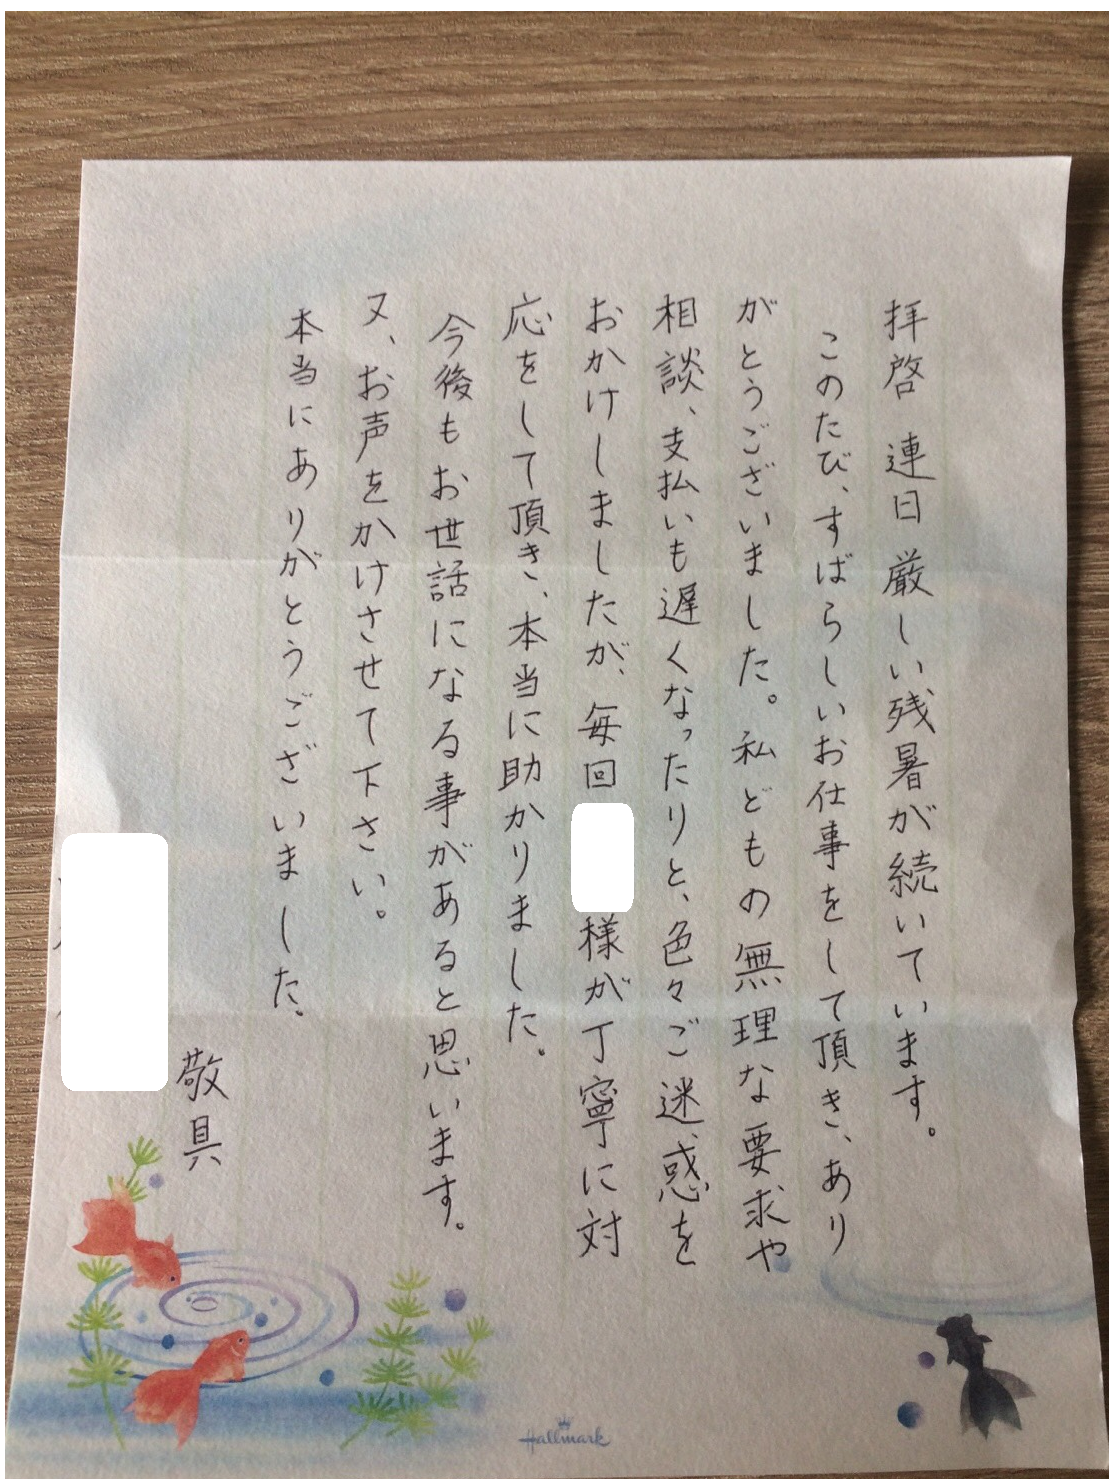 拝啓 連日厳しい残暑が続いています。
このたび、すばらしいお仕事をして頂き、あり
がとうございました。私どもの無理な要求や
相談、支払いも遅くなったりと、色々ご迷惑を
おかけしましたが、毎回様が丁寧に対
応をして頂き、本当に助かりました。
今後もお世話になる事があると思います。
又、お声をかけさせて下さい。
本当にありがとうございました。
敬具
Hallmark